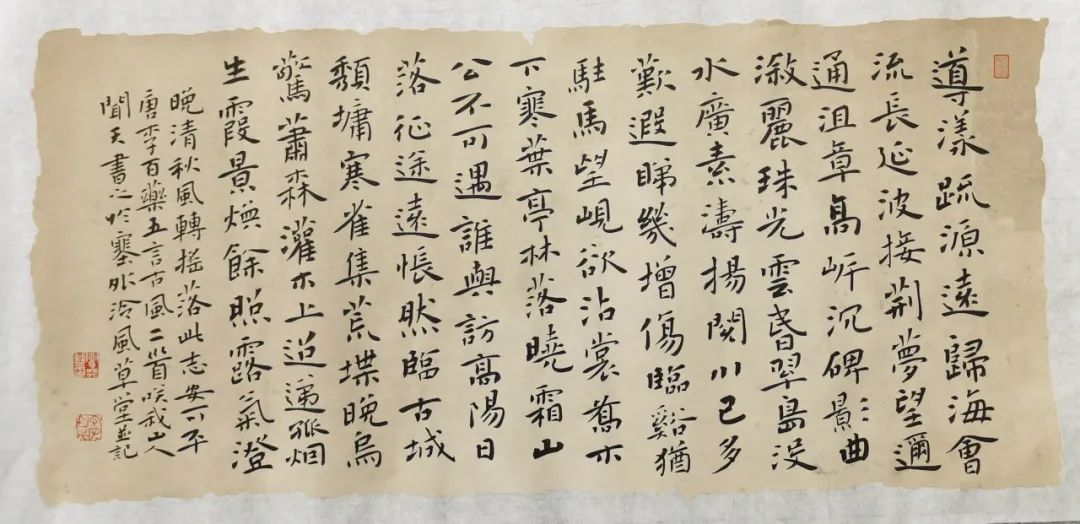 導漾疏源遠歸海會
流長延波接荊夢望邇
通沮章高岸沉碑影曲
溆麗珠光雲昏翠島没
水廣素濤揚閱川已多
歎遐睇幾增傷臨谿猶
駐馬望峴欲沾裳喬木
下寒葉亭林落曉霜山
公不可遇誰與訪高陽日
落征途遠悵然臨古城
頹墉寒雀集荒堞晚烏
驚蕭森灌木上迢遞孤烟
生霞景煥餘照露氣澄
晚清秋風轉搖落此志安可平
唐李百藥五言古風二首咲我山人
聞天書之於塞外冷風草堂並記